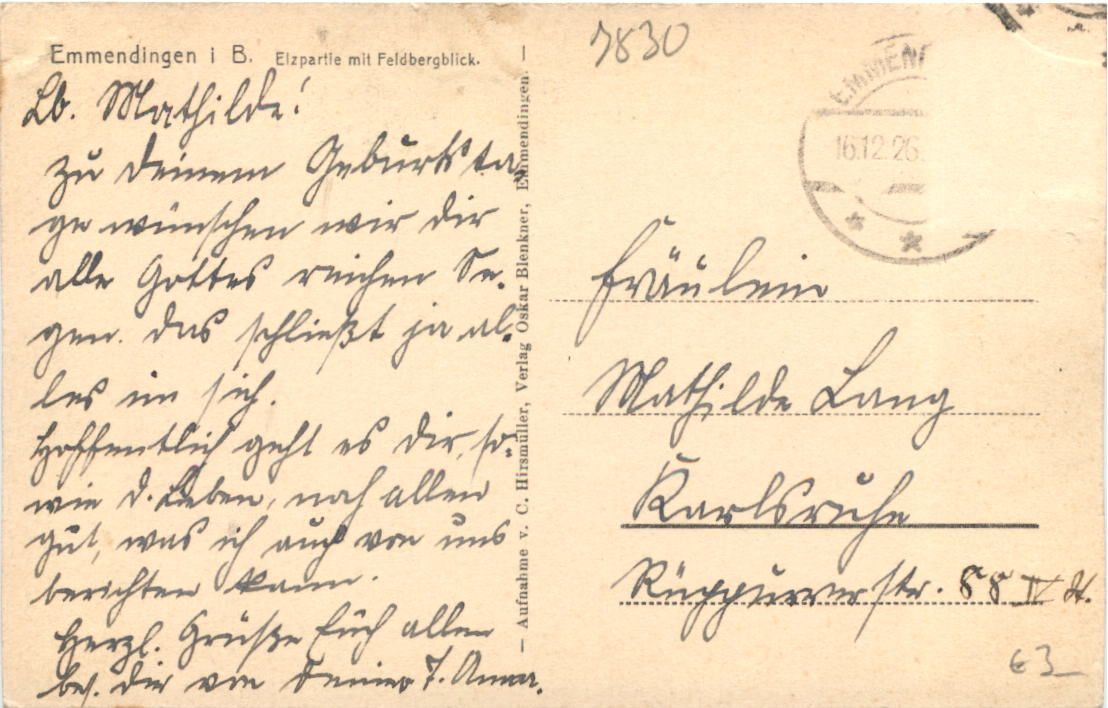 Emmendingen i B. Elzpartie mit Feldbergblick.
Lb. Mathilde!
Zu Deinem Geburtsta-
ge wünschen wir Dir
alle Gottes reichen Se-
gen. Das schließt ja al-
les in sich.
Hoffentlich geht es Dir, so-
wie d. Lieben, noch allen
gut, was ich auch von uns
berichten kann.
Herzl. Grüße Euch allen
bes. Dir von Deiner T. Anna.
— Aufnahme v. C. Hirsmüller, Verlag Oskar Blenkner, Emmendingen. —
7830
EMMEN
16.12.26.
Fräulein
Mathilde Lang
Karlsruhe
Rüppurrerstr. 88 IV St.
€3